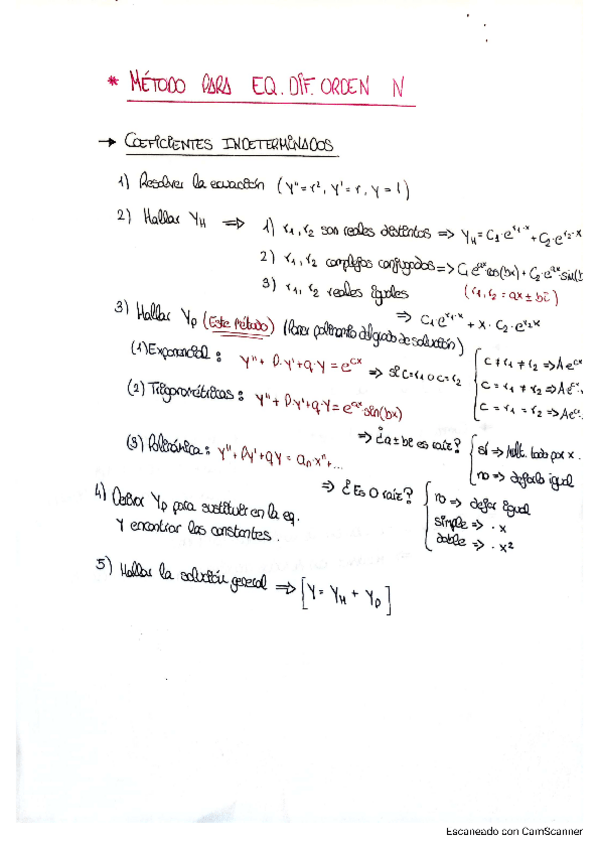 * MÉTODO PARA EQ. DIF. ORDEN N
→ COEFICIENTES INDETERMINADOS
1) Resolver la ecuación (y'' = r², y' = r, y = 1)
2) Hallar Y_H ⇒ 1) r₁, r₂ son reales distintos ⇒ Y_H = C₁·e^(r₁·x) + C₂·e^(r₂·x)
2) r₁, r₂ complejos conjugados ⇒ C₁e^(ax)cos(bx) + C₂·e^(ax)sin(b
3) r₁, r₂ reales iguales (r₁, r₂ = ax ± bi)
⇒ C₁e^(r₁·x) + x·C₂·e^(r₂x)
3) Hallar Y_p (Este Método) (Poner polinomio del grado de solución)
(1) Exponencial: y'' + P·y' + q·y = e^(cx) ⇒ si c = r₁ o c = r₂
c ≠ r₁ ≠ r₂ ⇒ Ae^(cx)
c = r₁ ≠ r₂ ⇒ Ae^(cx)
c = r₁ = r₂ ⇒ Ae^(cx)
(2) Trigonométricas: y'' + P·y' + q·y = e^(ax)·sin(bx)
⇒ ¿a±bi es raíz?
sí ⇒ Mult. todo por x.
no ⇒ dejarlo igual
(3) Polinómica: y'' + Py' + qy = aₙxⁿ + ...
⇒ ¿Es 0 raíz?
no ⇒ dejar igual
simple ⇒ · x
doble ⇒ · x²
4) Derivar Y_p para sustituir en la eq.
y encontrar las constantes.
5) Hallar la solución general ⇒ [Y = Y_H + Y_p]
Escaneado con CamScanner